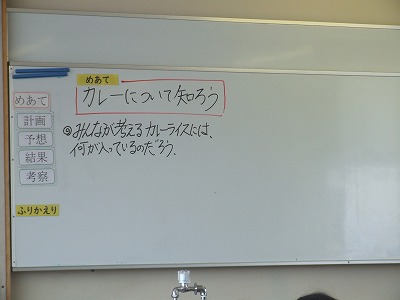 めあて
カレーについて知ろう
◎みんなが考えるカレーライスには、
何が入っているのだろう。
めあて
計画
予想
結果
考察
ふりかえり